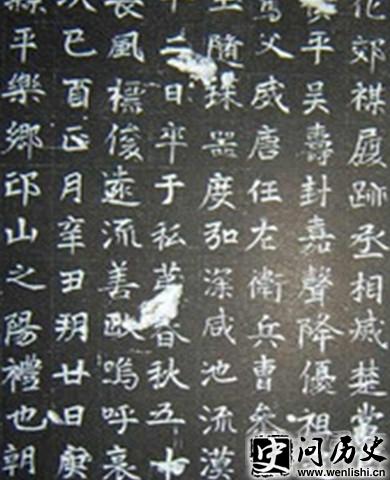 郊禖履跡丞相威楚當
平吳壽封嘉聲降優祖
父威唐任右衛兵曹參
隨珠器度弘深咸池流漢
二日卒于私第春秋五十
風標俊遠流善歐嗚呼哀
次己酉正月辛丑朔廿日庚
縣平樂鄉邙山之陽禮也朝
史问历史
www.wenlishi.cn